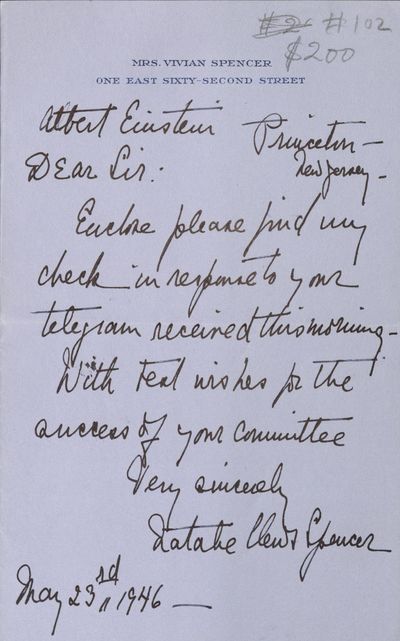 #2 #102
$200
MRS. VIVIAN SPENCER
ONE EAST SIXTY-SECOND STREET
Albert Einstein Princeton -
Dear Sir: New Jersey -
Enclose please find my
check in response to your
telegram received this morning -
With best wishes for the
success of your committee
Very sincerely
Natalie Clews Spencer
May 23rd 1946 -